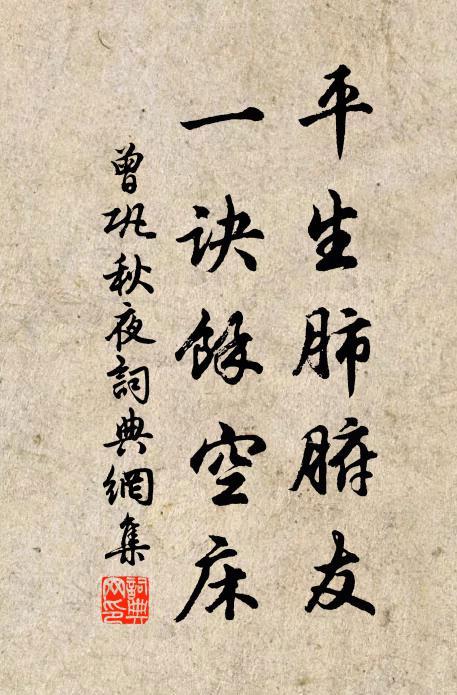 平生肺腑友
一诀餘空床
曾巩秋夜詞典網集
詞典网印